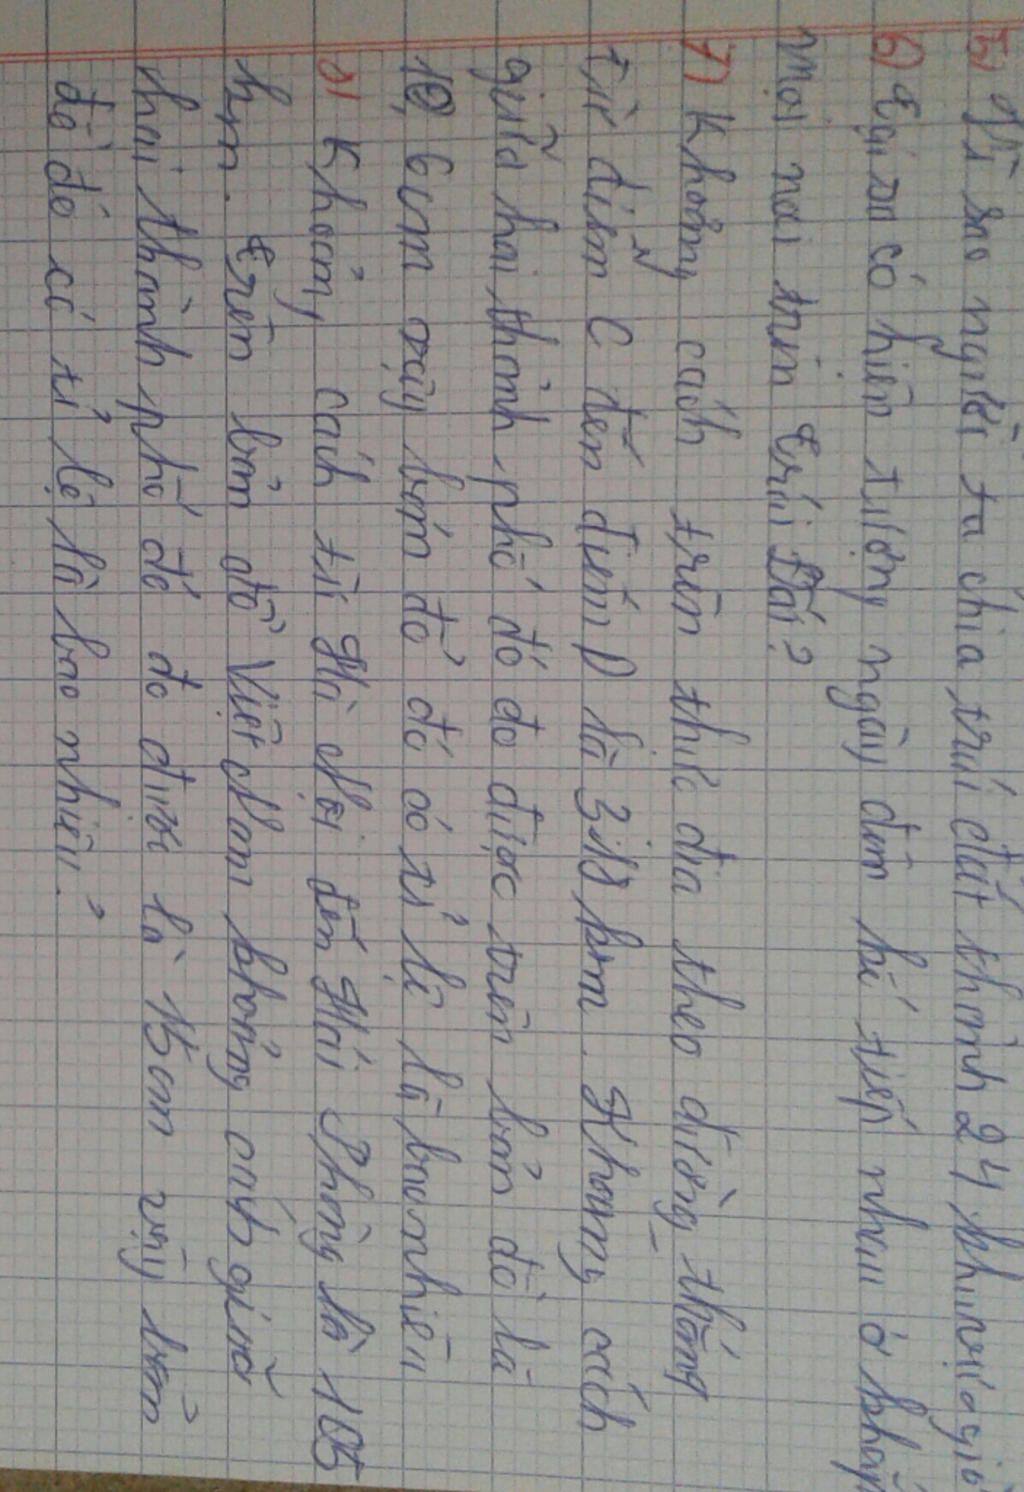 5) Vì sao người ta chia trái đất thành 24 khu vực giờ
6) Tại sao có hiện tượng ngày đêm kế tiếp nhau ở khắp
mọi nơi trên Trái Đất?
7) Khoảng cách trên thực địa theo đường thẳng
từ điểm C đến điểm D là km. Khoảng cách
giữa hai thành phố đó đo được trên bản đồ là
cm vậy bản đồ đó có tỉ lệ là bao nhiêu
8) Khoảng cách từ Hà Nội đến Hải Phòng là 105
km. Trên bản đồ Việt Nam khoảng cách giữa
hai thành phố đó đo được là 15cm vậy bản
đồ đó có tỉ lệ là bao nhiêu?